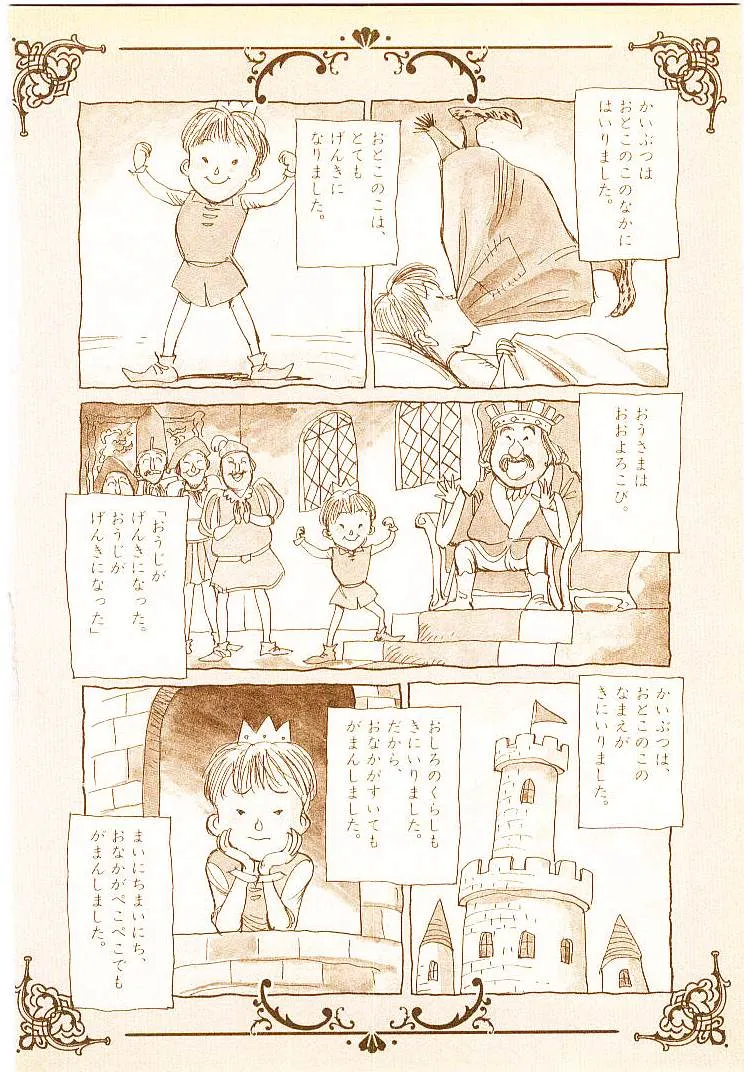 かいぶつは
おとこのこのなかに
はいりました。
おとこのこは、
とても
げんきに
なりました。
おうさまは
おおよろこび。
「おうじが
げんきになった。
おうじが
げんきになった」
かいぶつは、
おとこのこの
なまえが
きにいりました。
おしろのくらしも
きにいりました。
だから、
おなかがすいても
がまんしました。
まいにちまいにち、
おなかがぺこぺこでも
がまんしました。